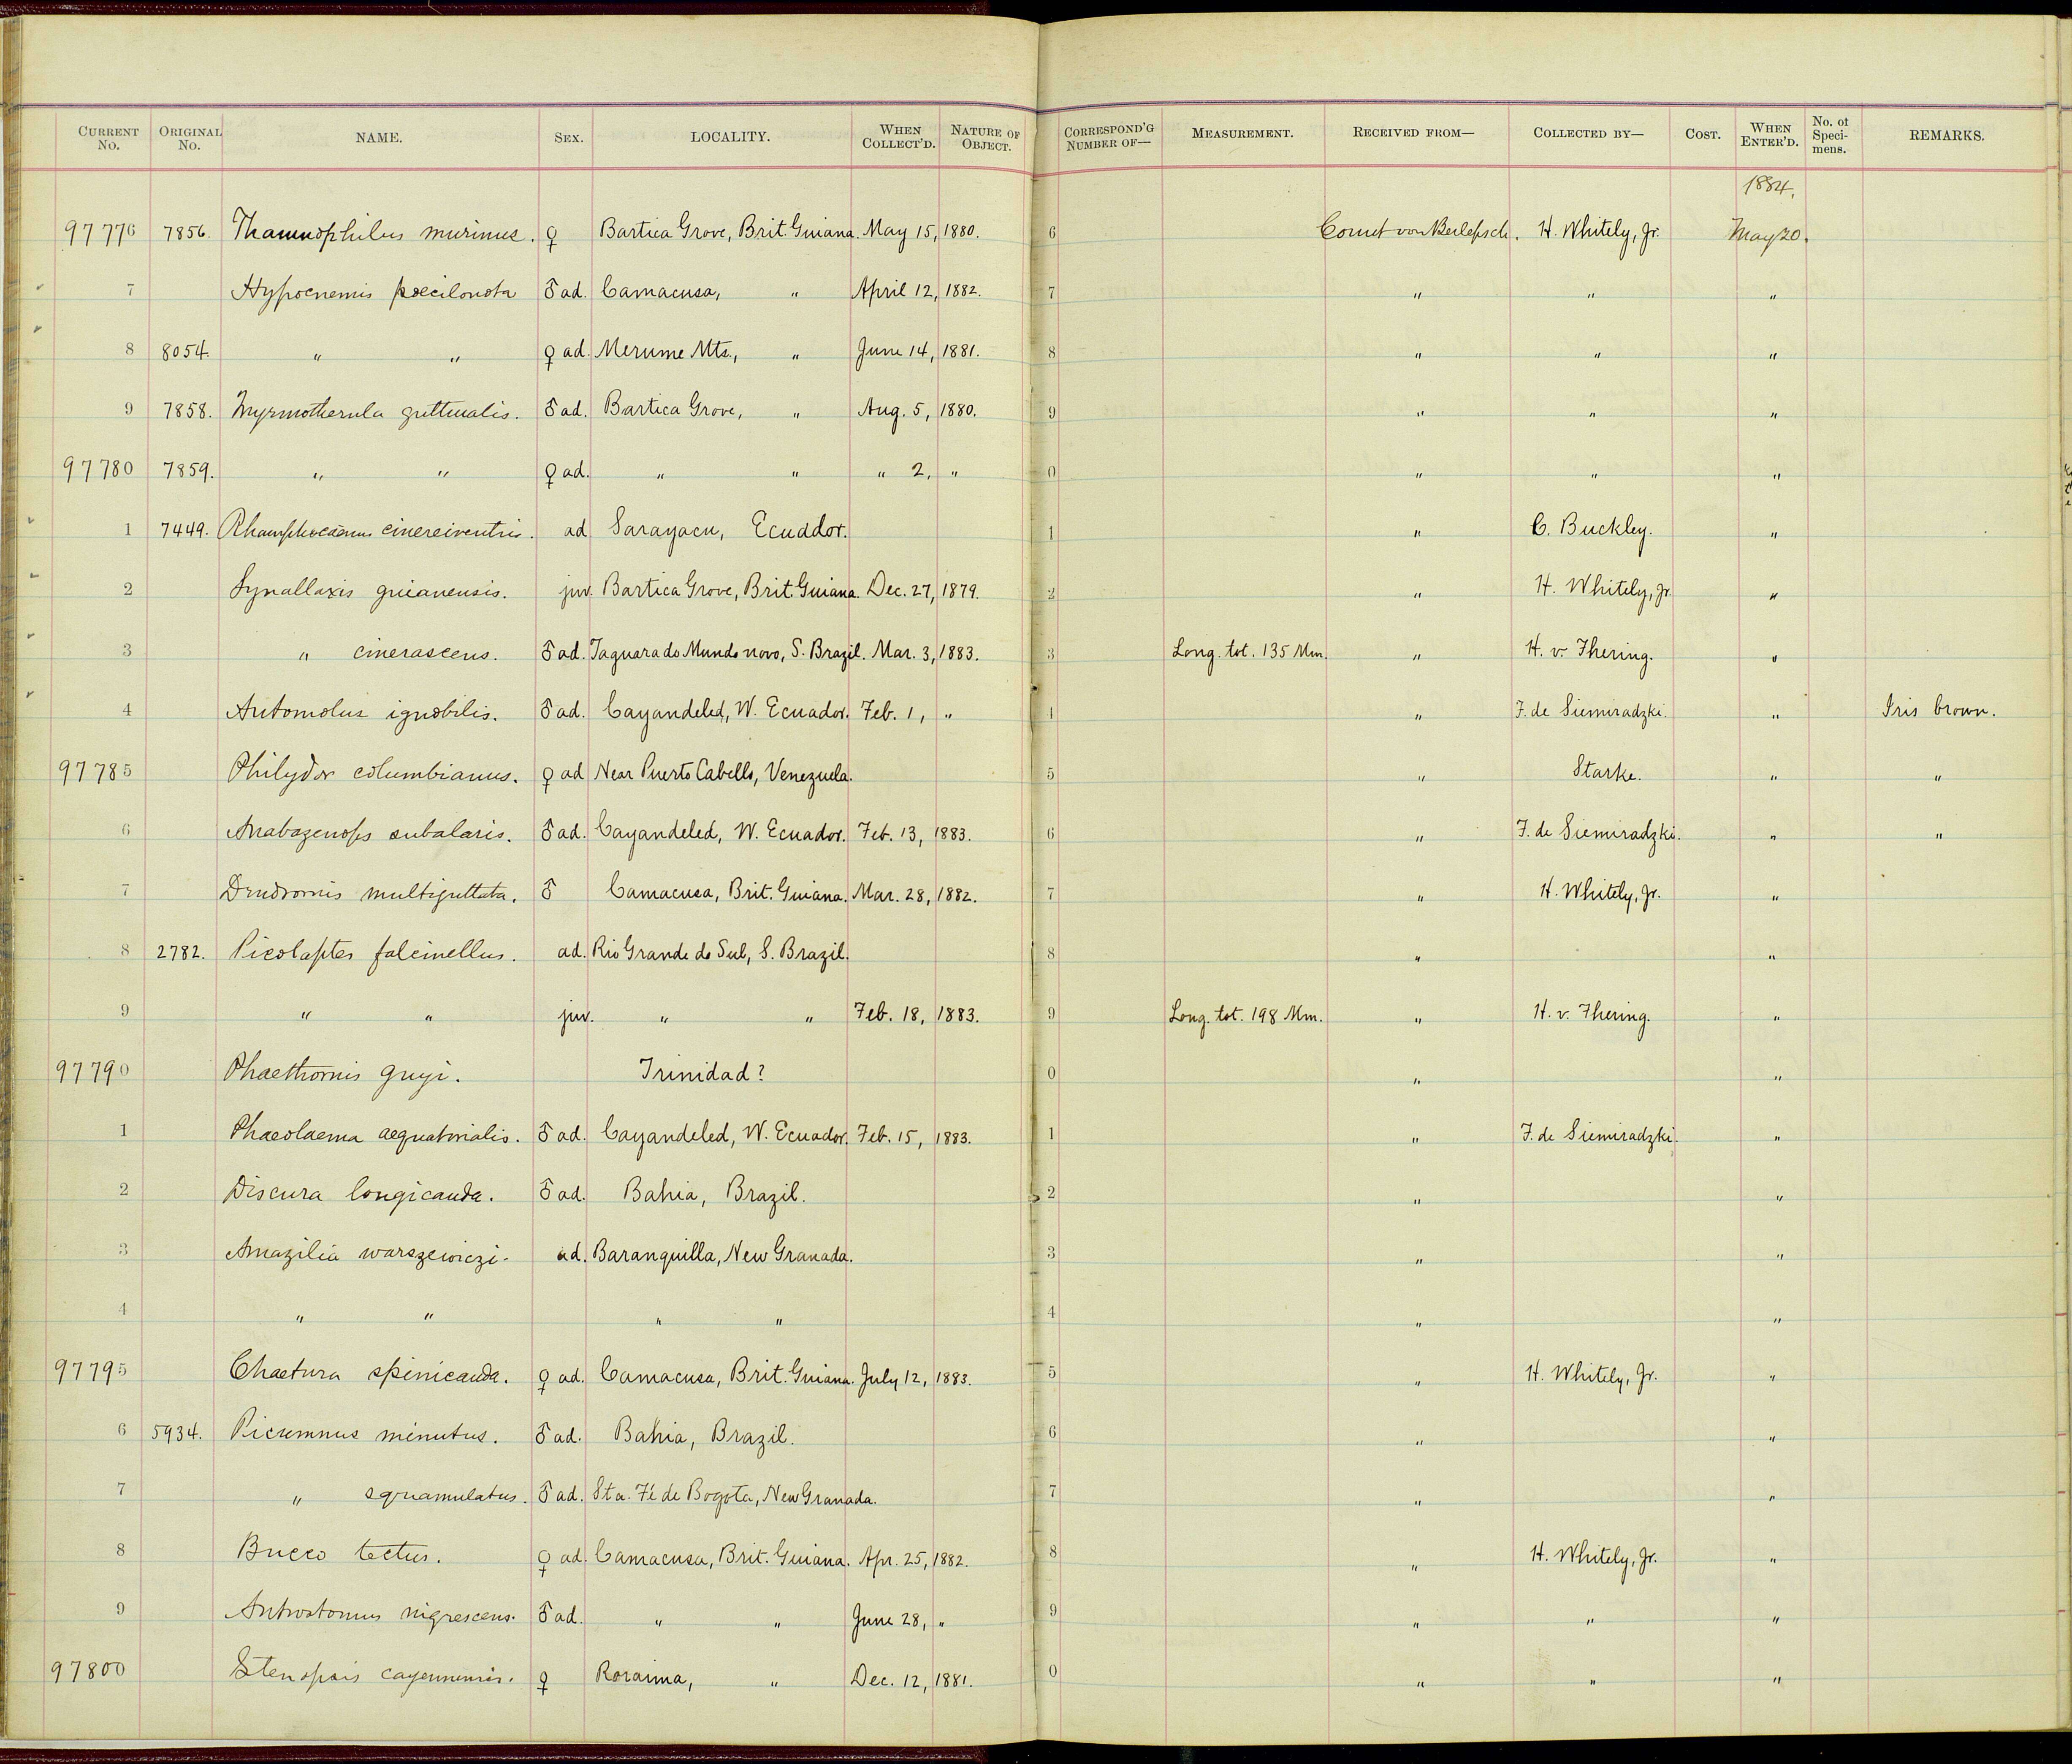 CURRENT No. ORIGINAL No. NAME. SEX. LOCALITY. WHEN COLLECT'D. NATURE OF OBJECT. CORRESPOND'G NUMBER OF— MEASUREMENT. RECEIVED FROM— COLLECTED BY— COST. WHEN ENTER'D. No. of Specimens. REMARKS.
1884.
97776 7856. Thamnophilus murinus. ♀ Bartica Grove, Brit. Guiana. May 15, 1880. 6 Comet von Berlepsch. H. Whitely, Jr. May 20.
7 Hypocnemis poecilonota ♂ ad. Camacusa, " April 12, 1882. 7 " " "
8 8054. " " ♀ ad. Merume Mts., " June 14, 1881. 8 " " "
9 7858. Myrmotherula guttualis. ♂ ad. Bartica Grove, " Aug. 5, 1880. 9 " " "
97780 7859. " " ♀ ad. " " " 2, " 0 " " "
1 7449. Rhamphocaenus cinereiventris. ad Sarayacu, Ecuador. 1 " C. Buckley. "
2 Synallaxis guianensis. juv. Bartica Grove, Brit. Guiana. Dec. 27, 1879. 2 " H. Whitely, Jr. "
3 " cinerascens. ♂ ad. Taquara do Mundo novo, S. Brazil. Mar. 3, 1883. 3 Long. tot. 135 Mm. " H. v. Ihering. "
4 Automolus ignobilis. ♂ ad. Cayandeled, W. Ecuador. Feb. 1, " 4 " J. de Siemiradzki. " Iris brown.
97785 Philydor columbianus. ♀ ad Near Puerto Cabello, Venezuela. 5 " Starke. " "
6 Anabazenops subalaris. ♂ ad. Cayandeled, W. Ecuador. Feb. 13, 1883. 6 " J. de Siemiradzki. " "
7 Dendrornis multiguttata. ♂ Camacusa, Brit. Guiana. Mar. 28, 1882. 7 " H. Whitely, Jr. "
8 2782. Picolaptes falcinellus. ad. Rio Grande do Sul, S. Brazil. 8 " "
9 " " juv. " " Feb. 18, 1883. 9 Long. tot. 198 Mm. " H. v. Ihering. "
97790 Phaethornis guyi. Trinidad? 0 " "
1 Phaeolaema aequatorialis. ♂ ad. Cayandeled, W. Ecuador. Feb. 15, 1883. 1 " J. de Siemiradzki. "
2 Discura longicauda. ♂ ad. Bahia, Brazil. 2 " "
3 Amazilia warszewiczi. ad. Baranquilla, New Granada. 3 " "
4 " " " " 4 " "
97795 Chaetura spinicauda. ♀ ad. Camacusa, Brit. Guiana. July 12, 1883. 5 " H. Whitely, Jr. "
6 5934. Picumnus minutus. ♂ ad. Bahia, Brazil. 6 " "
7 " squamulatus. ♂ ad. Sta. Fé de Bogota, New Granada. 7 " "
8 Bucco tectus. ♀ ad. Camacusa, Brit. Guiana. Apr. 25, 1882. 8 " H. Whitely, Jr. "
9 Antrostomus nigrescens. ♂ ad. " " June 28, " 9 " " "
97800 Stenopsis cayennensis. ♀ Roraima, " Dec. 12, 1881. 0 " " "